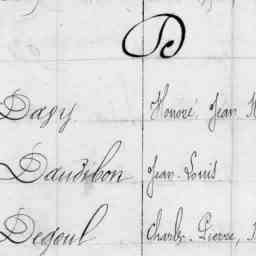 D
Dagy Honoré, Jean
Daudibon Jean-Louis
Degoul Charles-Pierre,